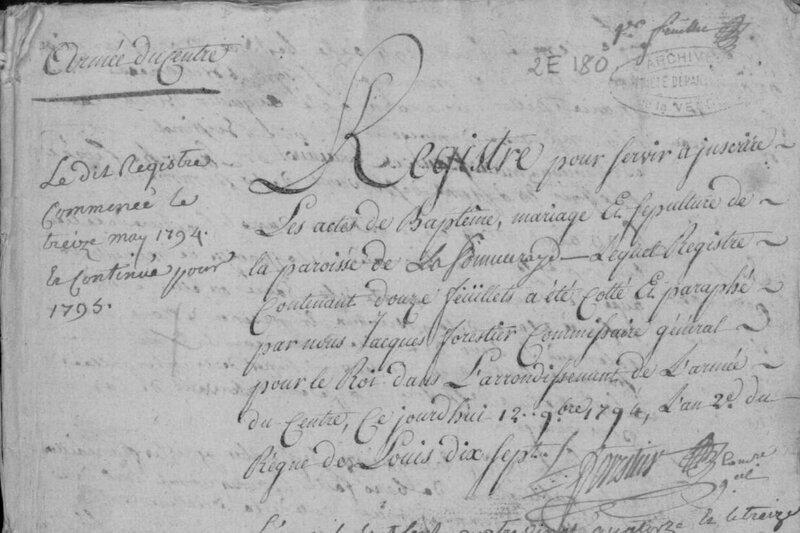 Armée du Centre
2E 180
feuillet
ARCHIVES
Le dit Registre
Commencé le
treize may 1794.
et Continué pour
1795.
Registre pour servir a juscrire
Les actes de Baptême, mariage Et Sepulture de
la paroisse de La Lequel Registre
Contenant douze feüillets a été Cotté Et paraphé
par nous Jacques forestier Commissaire général
pour le Roi dans L'arrondissement de L'armée
du Centre, Ce jourdhui 12. 9bre 1794, L'an 2e. du
Règne de Louis dix Sept.
forestier